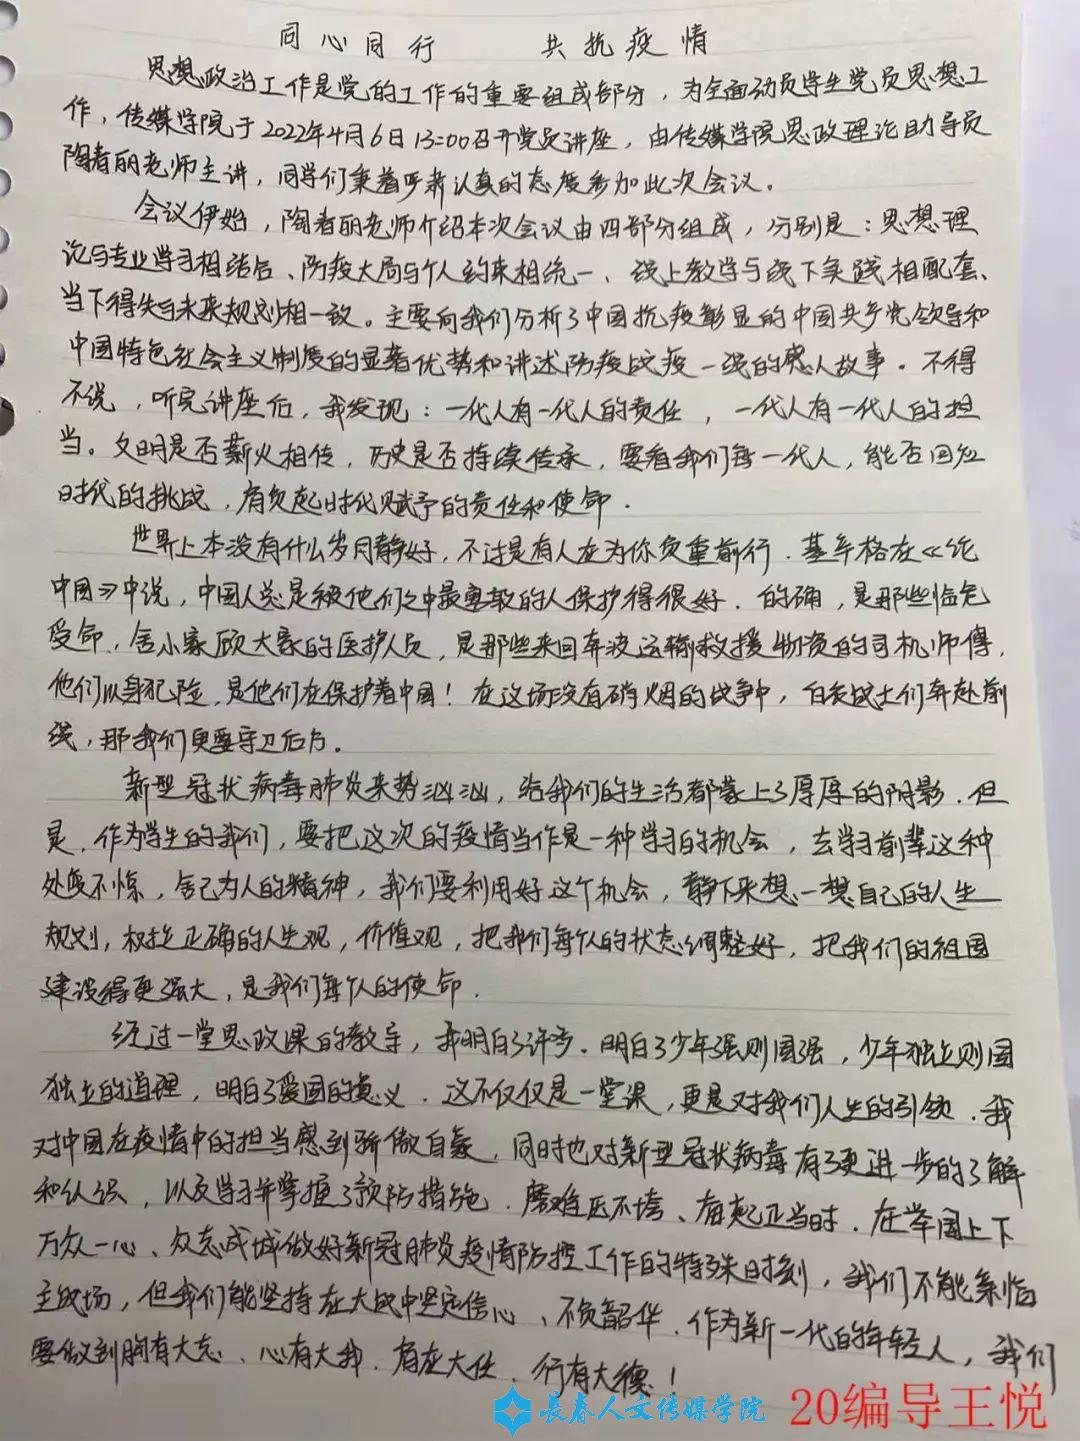 同心同行 共抗疫情
思想政治工作是党的工作的重要组成部分，为全面动员学生党员思想工
作，传媒学院于2022年4月6日13:00召开党员讲座，由传媒学院思政理论助导员
陶者丽老师主讲，同学们秉着严肃认真的态度参加此次会议。
会议伊始，陶者丽老师介绍本次会议由四部分组成，分别是：思想理
论与专业学习相结合、防疫大局与个人约束相统一、线上教学与线下实践相配套、
当下得失与未来规划相一致。主要向我们分析了中国抗疫彰显的中国共产党领导和
中国特色社会主义制度的显著优势和讲述防疫战疫一线的感人故事。不得
不说，听完讲座后，我发现：一代人有一代人的责任，一代人有一代人的担
当。文明是否薪火相传，历史是否持续传承，要看我们每一代人，能否回应
时代的挑战，肩负起时代赋予的责任和使命.
世界上本没有什么岁月静好，不过是有人在为你负重前行.基辛格在《论
中国》中说，中国人总是被他们之中最勇敢的人保护得很好.的确，是那些临危
受命，舍小家顾大家的医护人员，是那些来回奔波运输救援物资的司机师傅，
他们以身犯险，是他们在保护着中国！在这场没有硝烟的战争中，白衣战士们奔赴前
线，那我们更要守卫后方。
新型冠状病毒肺炎来势汹汹，给我们的生活都蒙上了厚厚的阴影.但
是，作为学生的我们，要把这次的疫情当作是一种学习的机会，去学习前辈这种
处变不惊，舍己为人的精神，我们要利用好这个机会，静下来想一想自己的人生
规划，树立正确的人生观，价值观，把我们每个人的状态调整好，把我们的祖国
建设得更强大，是我们每个人的使命.
经过一堂思政课的教导，我明白了许多.明白了少年强则国强，少年独立则国
独立的道理，明白了爱国的意义.这不仅仅是一堂课，更是对我们人生的引领.我
对中国在疫情中的担当感到骄傲自豪，同时也对新型冠状病毒有了更进一步的了解
和认识，以及学习并掌握了预防措施.磨难压不垮、奋起正当时.在举国上下
万众一心、众志成城做好新冠肺炎疫情防控工作的特殊时刻，我们不能亲临
主战场，但我们能坚持在大战中坚定信心、不负韶华.作为新一代的年轻人，我们
要做到胸有大志、心有大我.肩在大任、行有大德！
长春人文传媒学院
20编导王悦